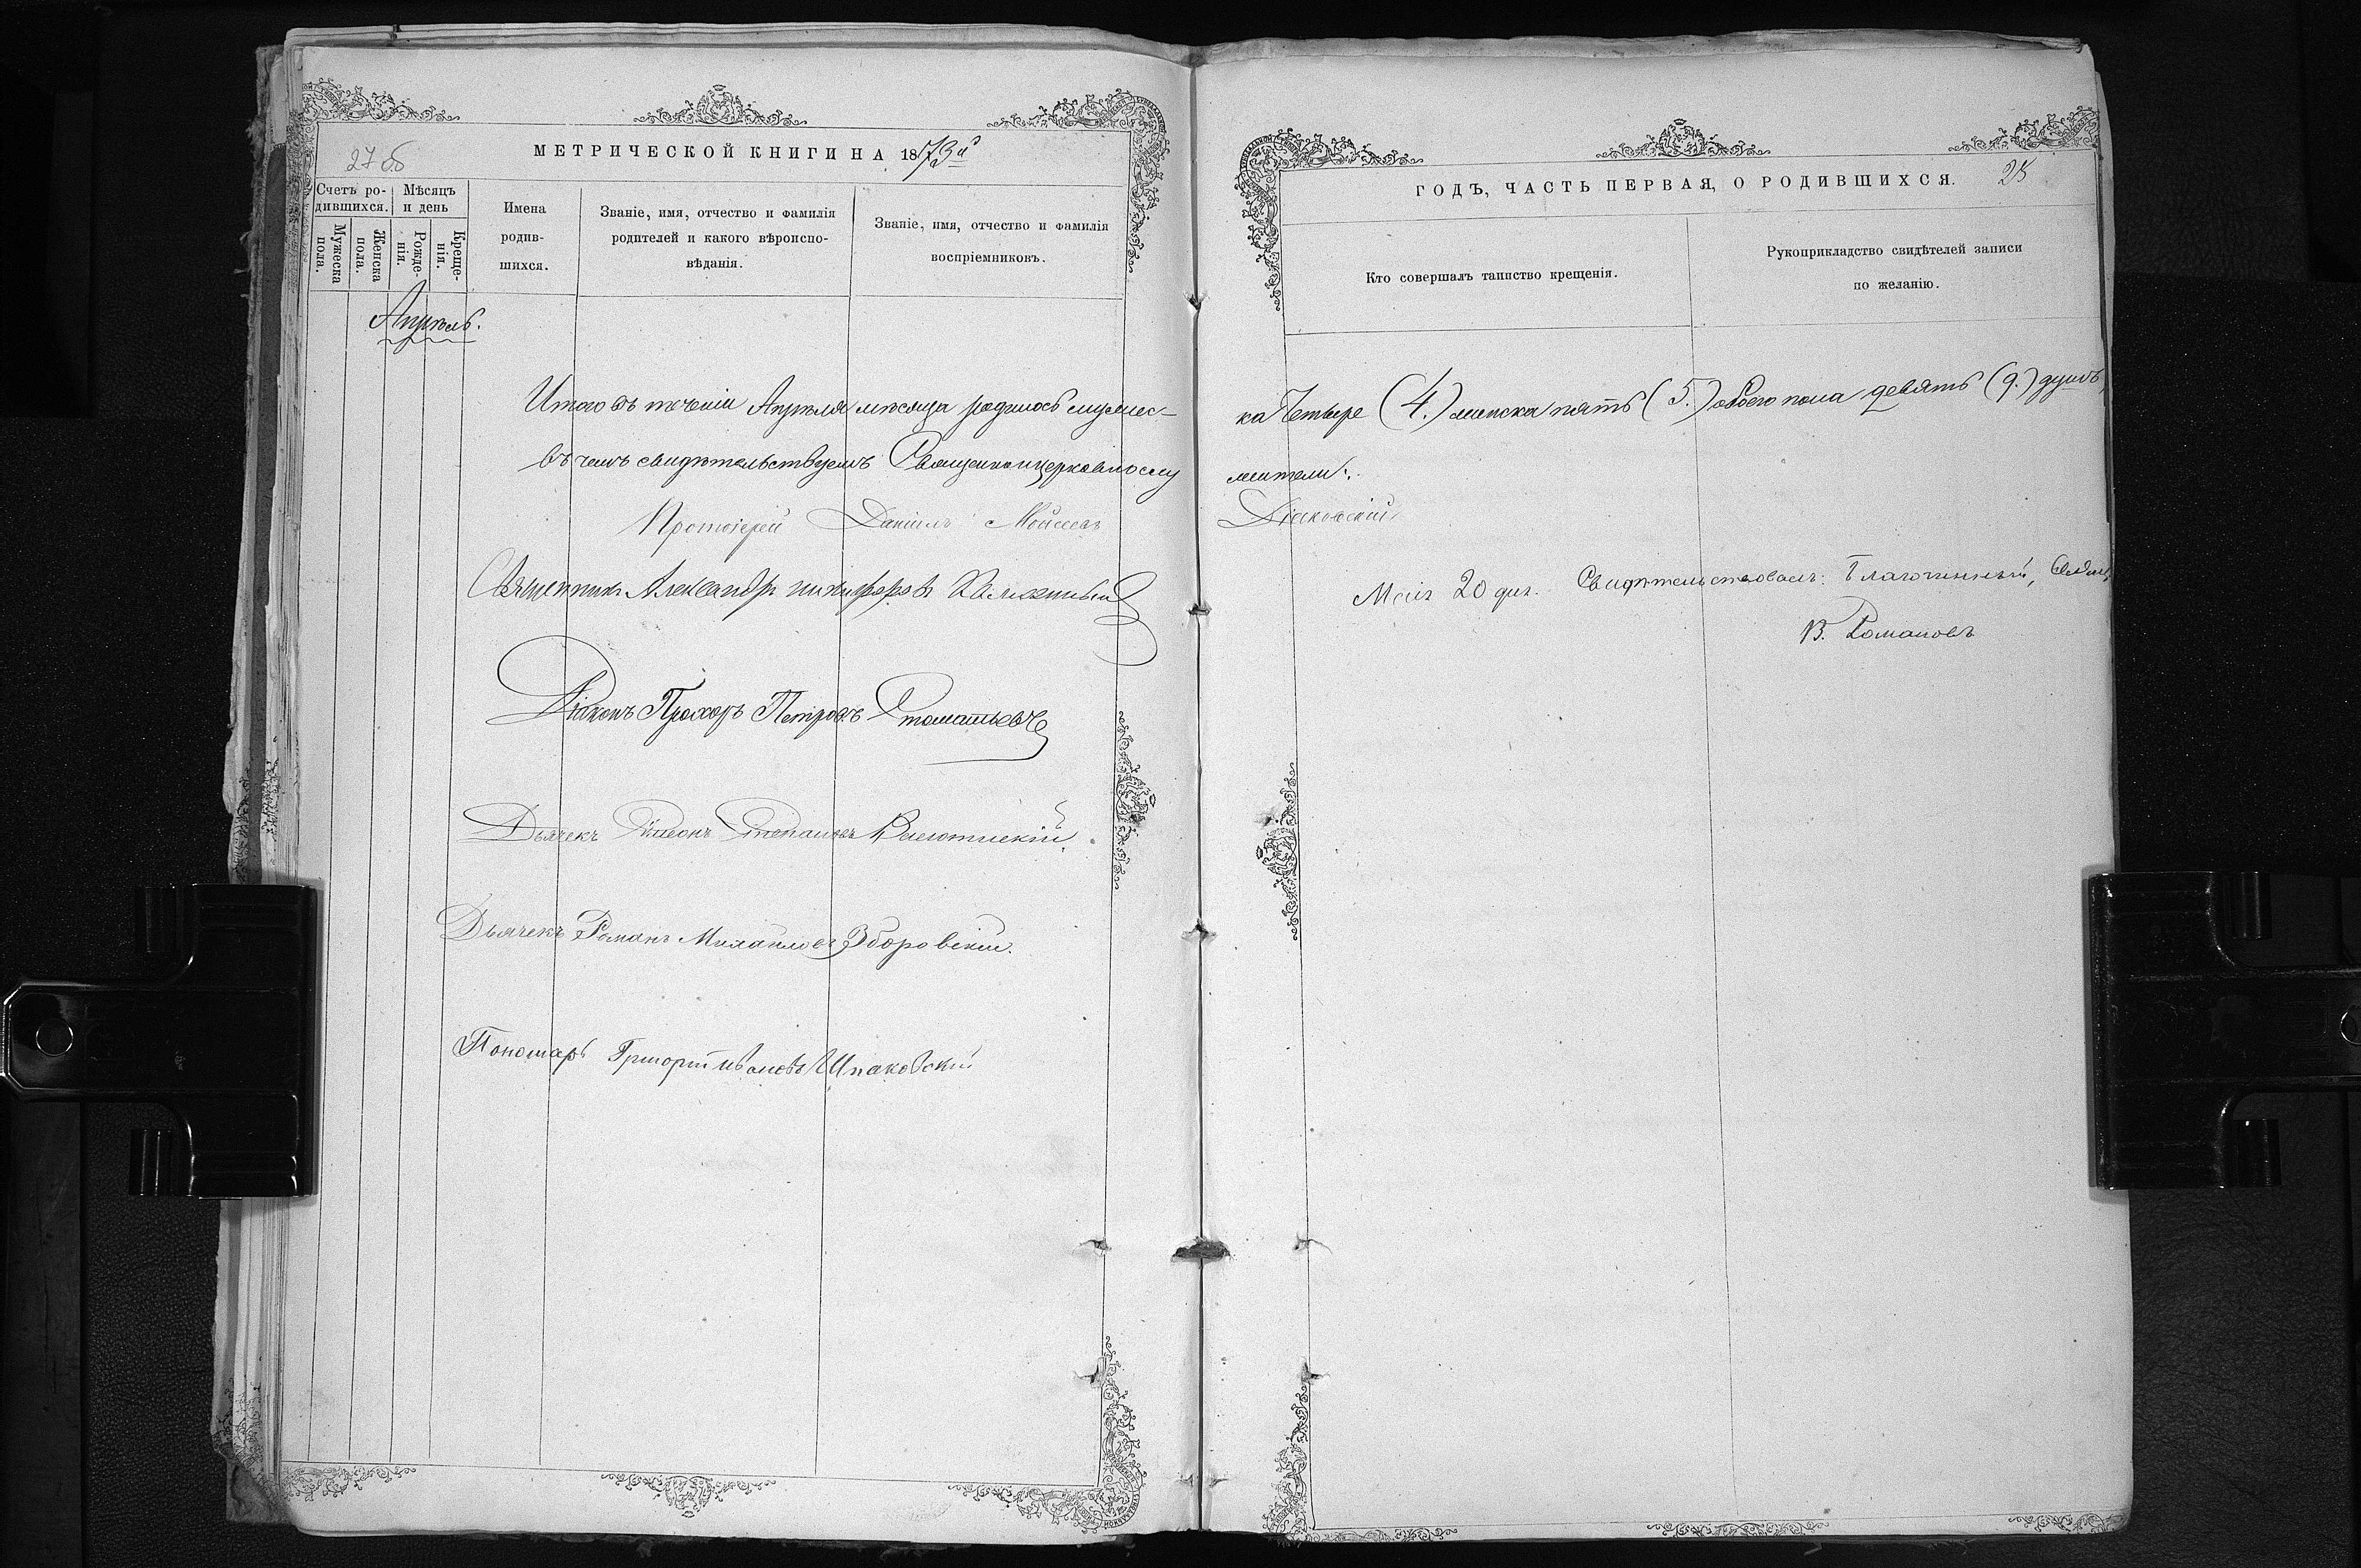 27 об
МЕТРИЧЕСКОЙ КНИГИ НА 1873й
Счетъ ро-
дившихся.
Мѣсяцъ
и день
Мужеска
пола.
Женска
пола.
Рожде-
нія.
Креще-
нія.
Имена
родив-
шихся.
Званіе, имя, отчество и фамилія
родителей и какого вѣроиспо-
вѣданія.
Званіе, имя, отчество и фамилія
воспріемниковъ.
Апрѣль.
Итого въ теченіи Апрѣля мѣсяца родилось мужес-
въ чемъ свидѣтельствуемъ Священноцерковнослу
Протоіерей Даніилъ Моисеевъ
Священникъ Александръ Никифоровъ
Діаконъ Прохоръ Петровъ
Дьячекъ Степановъ
Дьячекъ Романъ Михайловъ Зборовскій.
Пономарь Григорій Ивановъ Шпаковскій
ГОДЪ, ЧАСТЬ ПЕРВАЯ, О РОДИВШИХСЯ.
28
Кто совершалъ таинство крещенія.
Рукоприкладство свидѣтелей записи
по желанію.
ка Четыре (4.) женска пять (5.) обоего пола девять (9.) душъ,
жители:
Діаковскій
Маія 20 дня. Свидѣтельствовалъ: Благочинный,
В. Романовъ